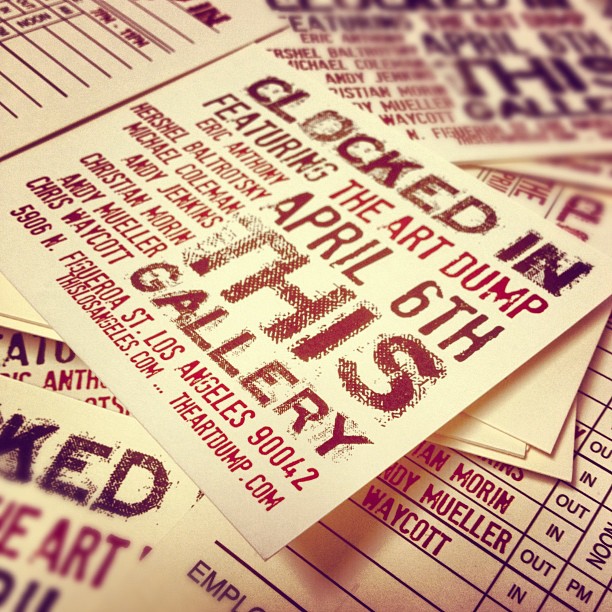 CLOCKED IN
FEATURING THE ART DUMP
ERIC ANTHONY
HERSHEL BALTROTSKY
MICHAEL COLEMAN
ANDY JENKINS
CHRISTIAN MORIN
ANDY MUELLER
CHRIS WAYCOTT
APRIL 6TH
THIS
GALLERY
5906 N. FIGUEROA ST. LOS ANGELES 90042
THISLOSANGELES.COM ... THEARTDUMP.COM
IN
7PM - 11PM
CLOCKED IN
FEATURING THE ART DUMP
ERIC ANTHONY
RSHEL BALTROTSKY
MICHAEL COLEMAN
ANDY JENKINS
ISTIAN MORIN
DY MUELLER
WAYCOTT
APRIL 6TH
THIS
GALLERY
N. FIGUEROA
CKED
HE ART
AN MORIN
DY MUELLER
WAYCOTT
EMPLO
IN
OUT
IN
OUT
IN
OUT
NOON
PM